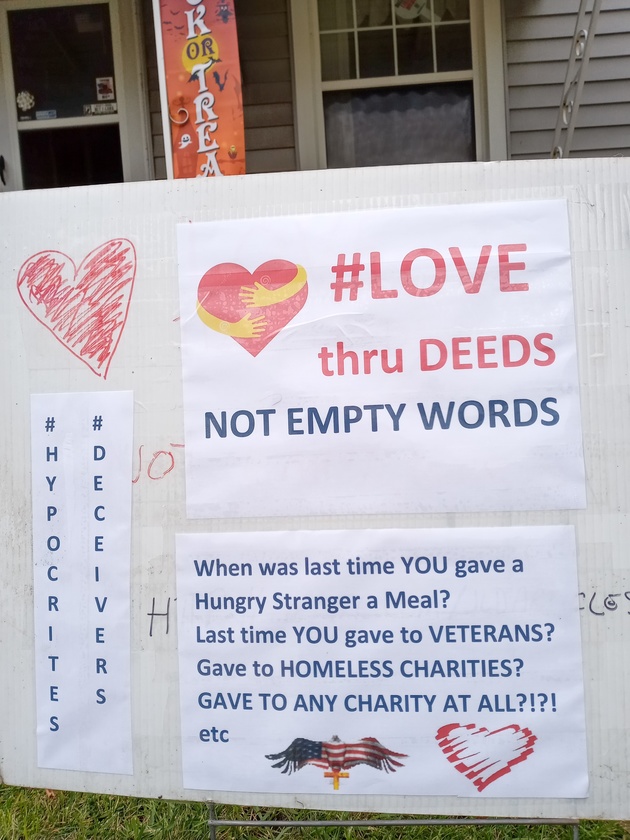 OR
TREA
#LOVE
thru DEEDS
NOT EMPTY WORDS
#HYPOCRITES
#DECEIVERS
When was last time YOU gave a
Hungry Stranger a Meal?
Last time YOU gave to VETERANS?
Gave to HOMELESS CHARITIES?
GAVE TO ANY CHARITY AT ALL?!?!
etc